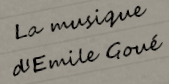 La musique
d'Emile Goué